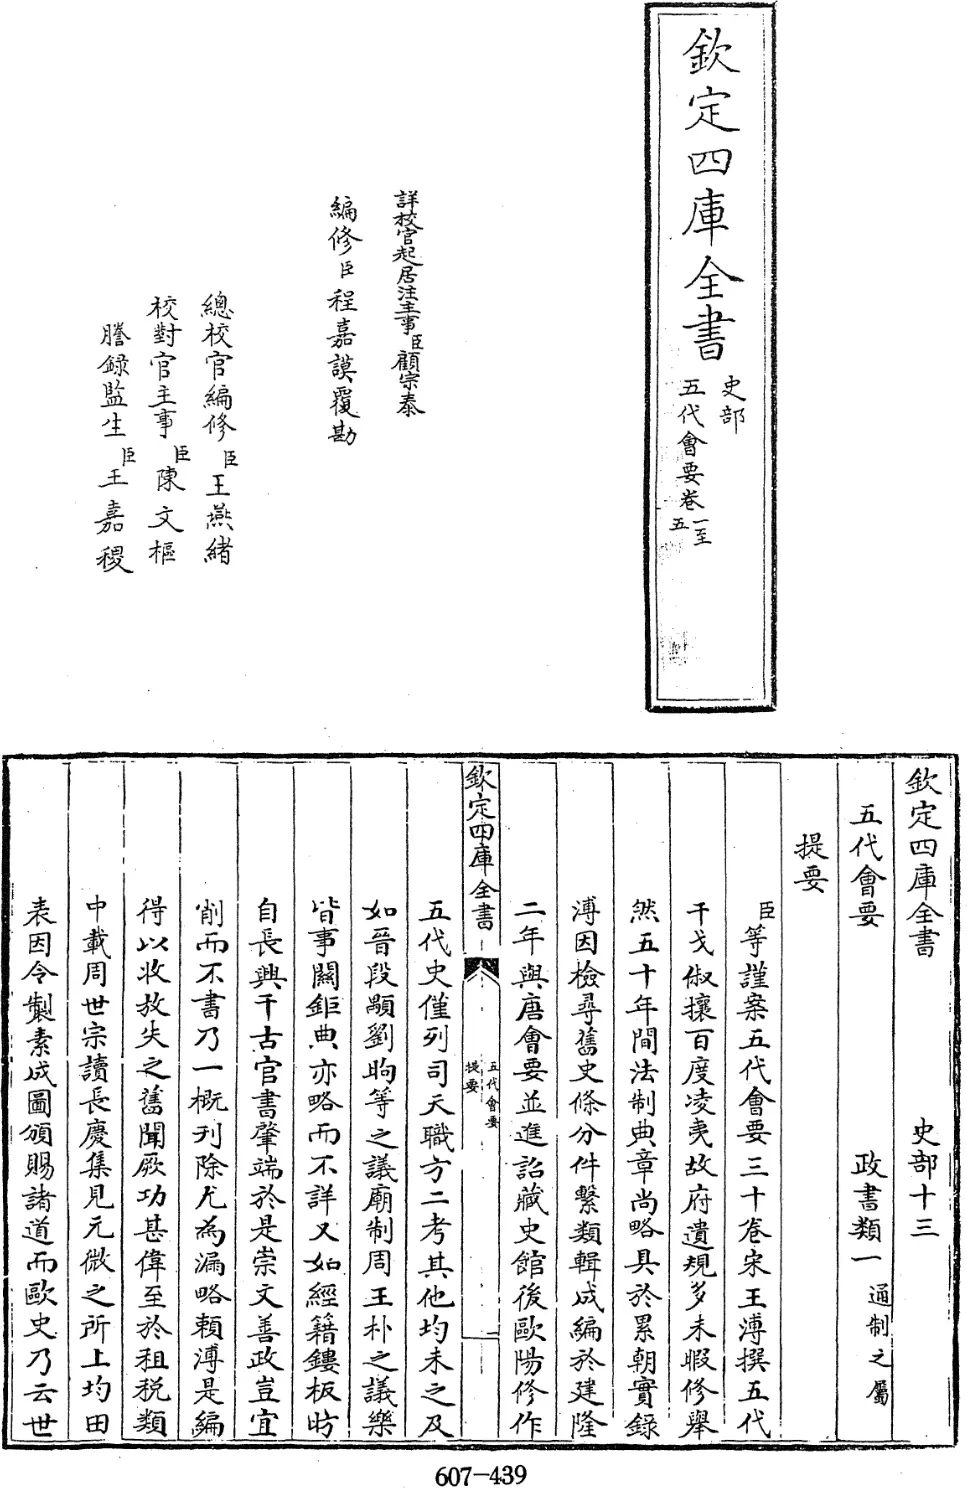 欽定四庫全書
史部
五代會要卷一至五
詳校官起居注主事臣顧宗泰
編修臣程嘉謨覆勘
總校官編修臣王燕緒
校對官主事臣陳文樞
謄錄監生臣王嘉稷
欽定四庫全書 史部十三
五代會要 政書類一 通制之屬
提要
臣等謹案五代會要三十卷宋王溥撰五代
干戈俶擾百度凌夷故府遺規多未暇修舉
然五十年間法制典章尚略具於累朝實錄
溥因檢尋舊史條分件繫類輯成編於建隆
二年與唐會要並進詔藏史館後歐陽修作
欽定四庫全書
五代會要
提要
一
五代史僅列司天職方二考其他均未之及
如晉段顒劉昫等之議廟制周王朴之議樂
皆事關鉅典亦略而不詳又如經籍鏤板昉
自長興千古官書肇端於是崇文善政豈宜
削而不書乃一概刊除尤為漏略賴溥是編
得以收放失之舊聞厥功甚偉至於租税類
中載周世宗讀長慶集見元微之所上均田
表因令製素成圖頒賜諸道而歐史乃云世
607-439